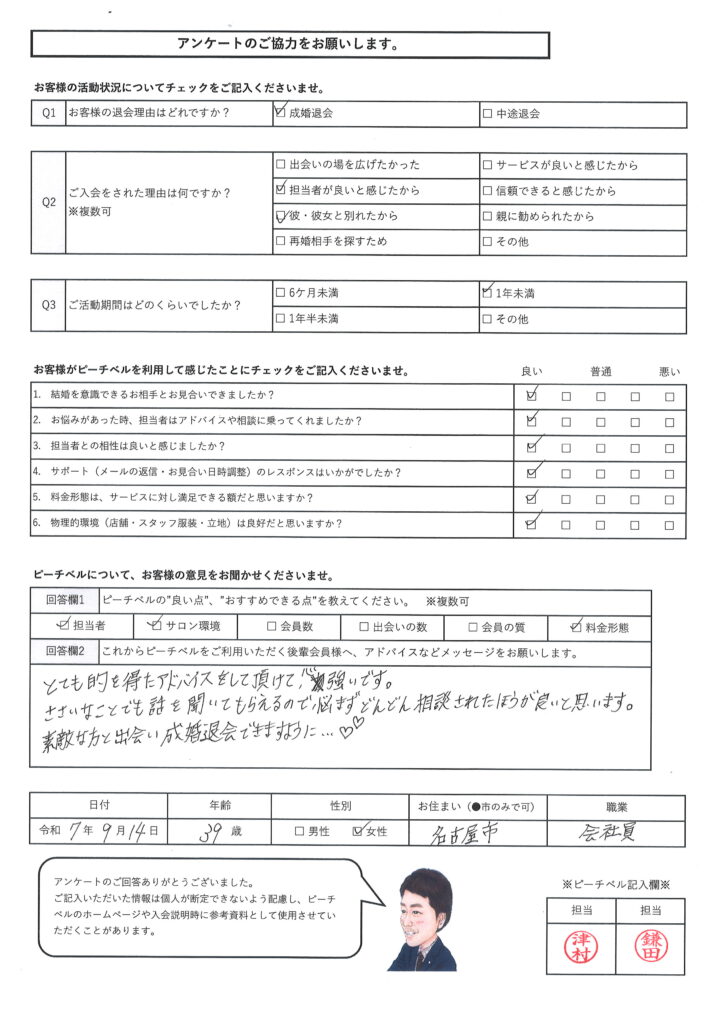 アンケートのご協力をお願いします。
お客様の活動状況についてチェックをご記入くださいませ。
Q1 お客様の退会理由はどれですか？ ☑ 成婚退会 □ 中途退会
Q2 ご入会をされた理由は何ですか？ ※複数可
□ 出会いの場を広げたかった □ サービスが良いと感じたから
☑ 担当者が良いと感じたから □ 信頼できると感じたから
☑ 彼・彼女と別れたから □ 親に勧められたから
□ 再婚相手を探すため □ その他
Q3 ご活動期間はどのくらいでしたか？
□ 6ケ月未満 ☑ 1年未満
□ 1年半未満 □ その他
お客様がピーチベルを利用して感じたことにチェックをご記入くださいませ。 良い 普通 悪い
1. 結婚を意識できるお相手とお見合いできましたか？ ☑ □ □ □ □
2. お悩みがあった時、担当者はアドバイスや相談に乗ってくれましたか？ ☑ □ □ □ □
3. 担当者との相性は良いと感じましたか？ ☑ □ □ □ □
4. サポート（メールの返信・お見合い日時調整）のレスポンスはいかがでしたか？ ☑ □ □ □ □
5. 料金形態は、サービスに対し満足できる額だと思いますか？ ☑ □ □ □ □
6. 物理的環境（店舗・スタッフ服装・立地）は良好だと思いますか？ ☑ □ □ □ □
ピーチベルについて、お客様の意見をお聞かせくださいませ。
回答欄1 ピーチベルの"良い点"、"おすすめできる点"を教えてください。 ※複数可
☑ 担当者 ☑ サロン環境 □ 会員数 □ 出会いの数 □ 会員の質 ☑ 料金形態
回答欄2 これからピーチベルをご利用いただく後輩会員様へ、アドバイスなどメッセージをお願いします。
とても的を得たアドバイスをして頂けて心強いです。
ささいなことでも話を聞いてもらえるので悩まずどんどん相談されたほうが良いと思います。
素敵な方と出会い成婚退会できますように…♡♡
日付 年齢 性別 お住まい（●市のみで可） 職業
令和 7 年 9 月 14 日 39 歳 □ 男性 ☑ 女性 名古屋市 会社員
アンケートのご回答ありがとうございました。
ご記入いただいた情報は個人が断定できないよう配慮し、ピーチ
ベルのホームページや入会説明時に参考資料として使用させてい
ただくことがあります。
※ピーチベル記入欄※
担当 担当
津村 鎌田